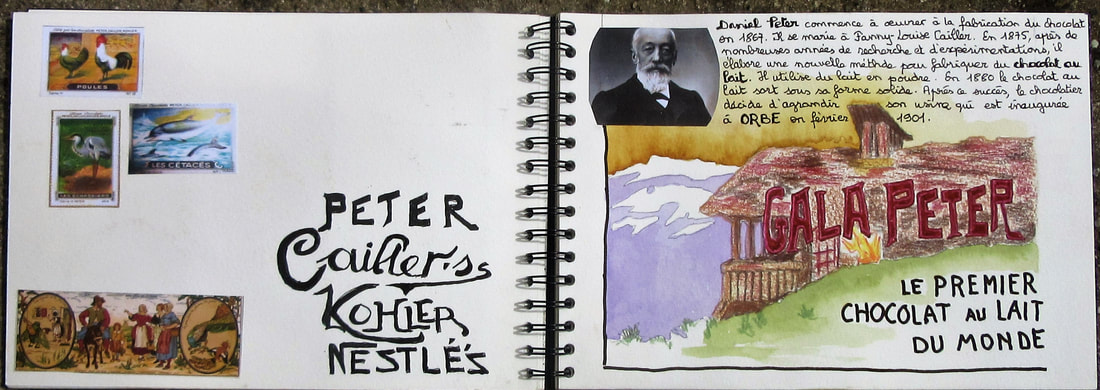 POULES
LES CÉTACÉS
PETER
Cailler's
KOHLER
NESTLÉ'S
Daniel Peter commence à œuvrer à la fabrication du chocolat
en 1867. Il se marie à Fanny-Louise Cailler. En 1875, après de
nombreuses années de recherche et d'expérimentations, il
élabore une nouvelle méthde pour fabriquer du chocolat au
lait. Il utilise du lait en poudre. En 1880 le chocolat au
lait sort sous sa forme solide. Après ce succès, le chocolatier
décide d'agrandir son usine qui est inaugurée
à ORBE en février 1901.
GALA PETER
LE PREMIER
CHOCOLAT AU LAIT
DU MONDE